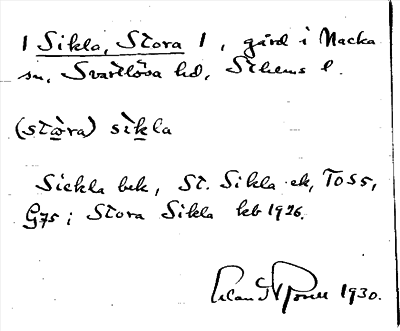 1 Sikla, Stora 1, gård i Nacka
sn, Svartlösa hd, Sthems l.
(stòra) sìkla
Sickla bek, St. Sikla ek, TO55,
G75; Stora Sikla kb 1926.
1930.